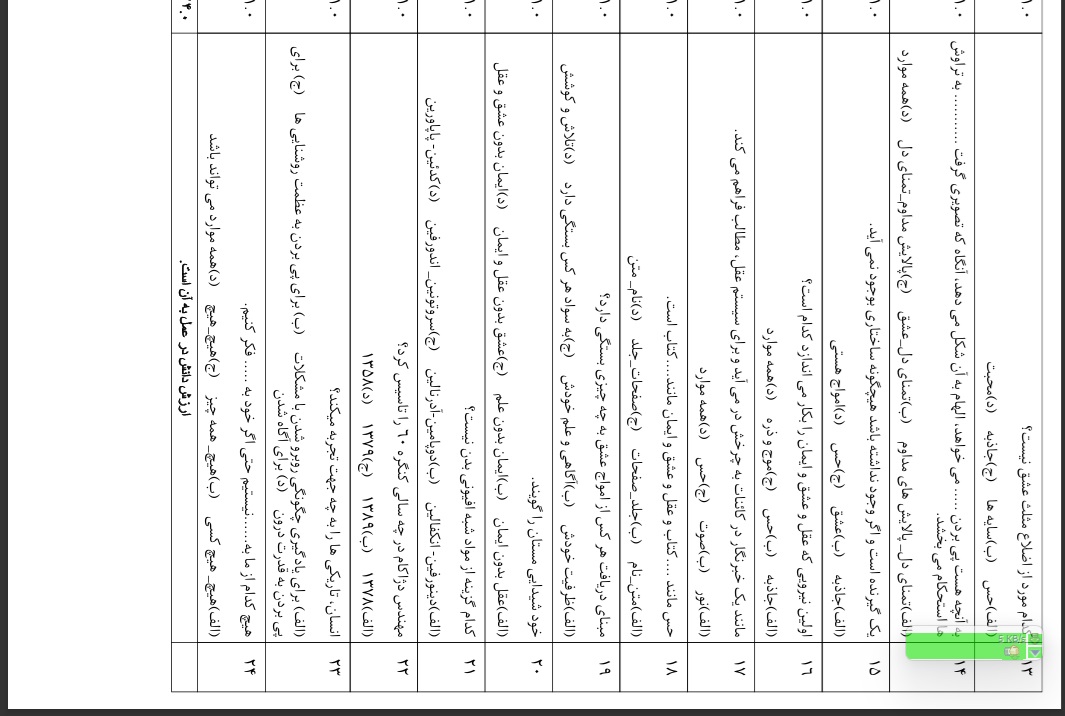 ۱۳ کدام مورد از اضلاع مثلث عشق نیست؟ ۱.۰
الف)حس ب)سایه ها ج)جاذبه د)محبت
۱۴ به آنچه هست پی بردن ...... می خواهد، الهام به آن شکل می دهد، آنگاه که تصویری گرفت ............ به تراوش ۱.۰
ها استحکام می بخشد.
الف)تمنای دل_ پالایش های مداوم ب)تمنای دل_عشق ج)پالایش مداوم_تمنای دل د)همه موارد
۱۵ یک گیرنده است و اگر وجود نداشته باشد هیچگونه ساختاری بوجود نمی آید. ۱.۰
الف)جاذبه ب)عشق ج)حس د)امواج هستی
۱۶ اولین نیرویی که عقل و عشق و ایمان را بکار می اندازد کدام است؟ ۱.۰
الف)جاذبه ب)حس ج)موج و ذره د)همه موارد
۱۷ مانند یک خبرنگار در کائنات به چرخش در می آید و برای سیستم عقل، مطالب فراهم می کند. ۱.۰
الف)نور ب)صوت ج)حس د)همه موارد
۱۸ حس مانند ..... کتاب و عقل و عشق و ایمان مانند.....کتاب است. ۱.۰
الف)متن_نام ب)جلد_صفحات ج)صفحات_جلد د)نام_ متن
۱۹ مبنای دریافت هر کس از امواج عشق به چه چیزی بستگی دارد؟ ۱.۰
الف)ظرفیت خودش ب)آگاهی و علم خودش ج)به سواد هر کس بستگی دارد د)تلاش و کوشش
۲۰ خود شیدایی مستان را گویند. ۱.۰
الف)عقل بدون ایمان ب)ایمان بدون علم ج)عشق بدون عقل و ایمان د)ایمان بدون عشق و عقل
۲۱ کدام گزینه از مواد شبه افیونی بدن نیست؟ ۱.۰
الف)دینورفین- انکفالین ب)دوپامین-آدرنالین ج)سروتونین_ اندورفین د)کدئین- پاپاورین
۲۲ مهندس دژاکام در چه سالی کنگره ۶۰ را تاسیس کرد؟ ۱.۰
الف)۱۳۷۸ ب)۱۳۸۹ ج)۱۳۷۹ د)۱۳۵۸
۲۳ انسان، تاریکی ها را به چه جهت تجربه میکند؟ ۱.۰
الف) برای یادگیری چگونگی روبرو شدن با مشکلات ب) برای پی بردن به عظمت روشنایی ها ج) برای
پی بردن به قدرت درون د) برای آگاه شدن
۲۴ هیچ کدام از ما به......نیستیم حتی اگر خود به ...... فکر کنیم. ۱.۰
الف)هیچ_ هیچ کسی ب)هیچ_ همه چیز ج)هیچ_هیچ د)همه موارد می تواند باشد
ارزش دانش در عمل به آن است. ۲۴.۰